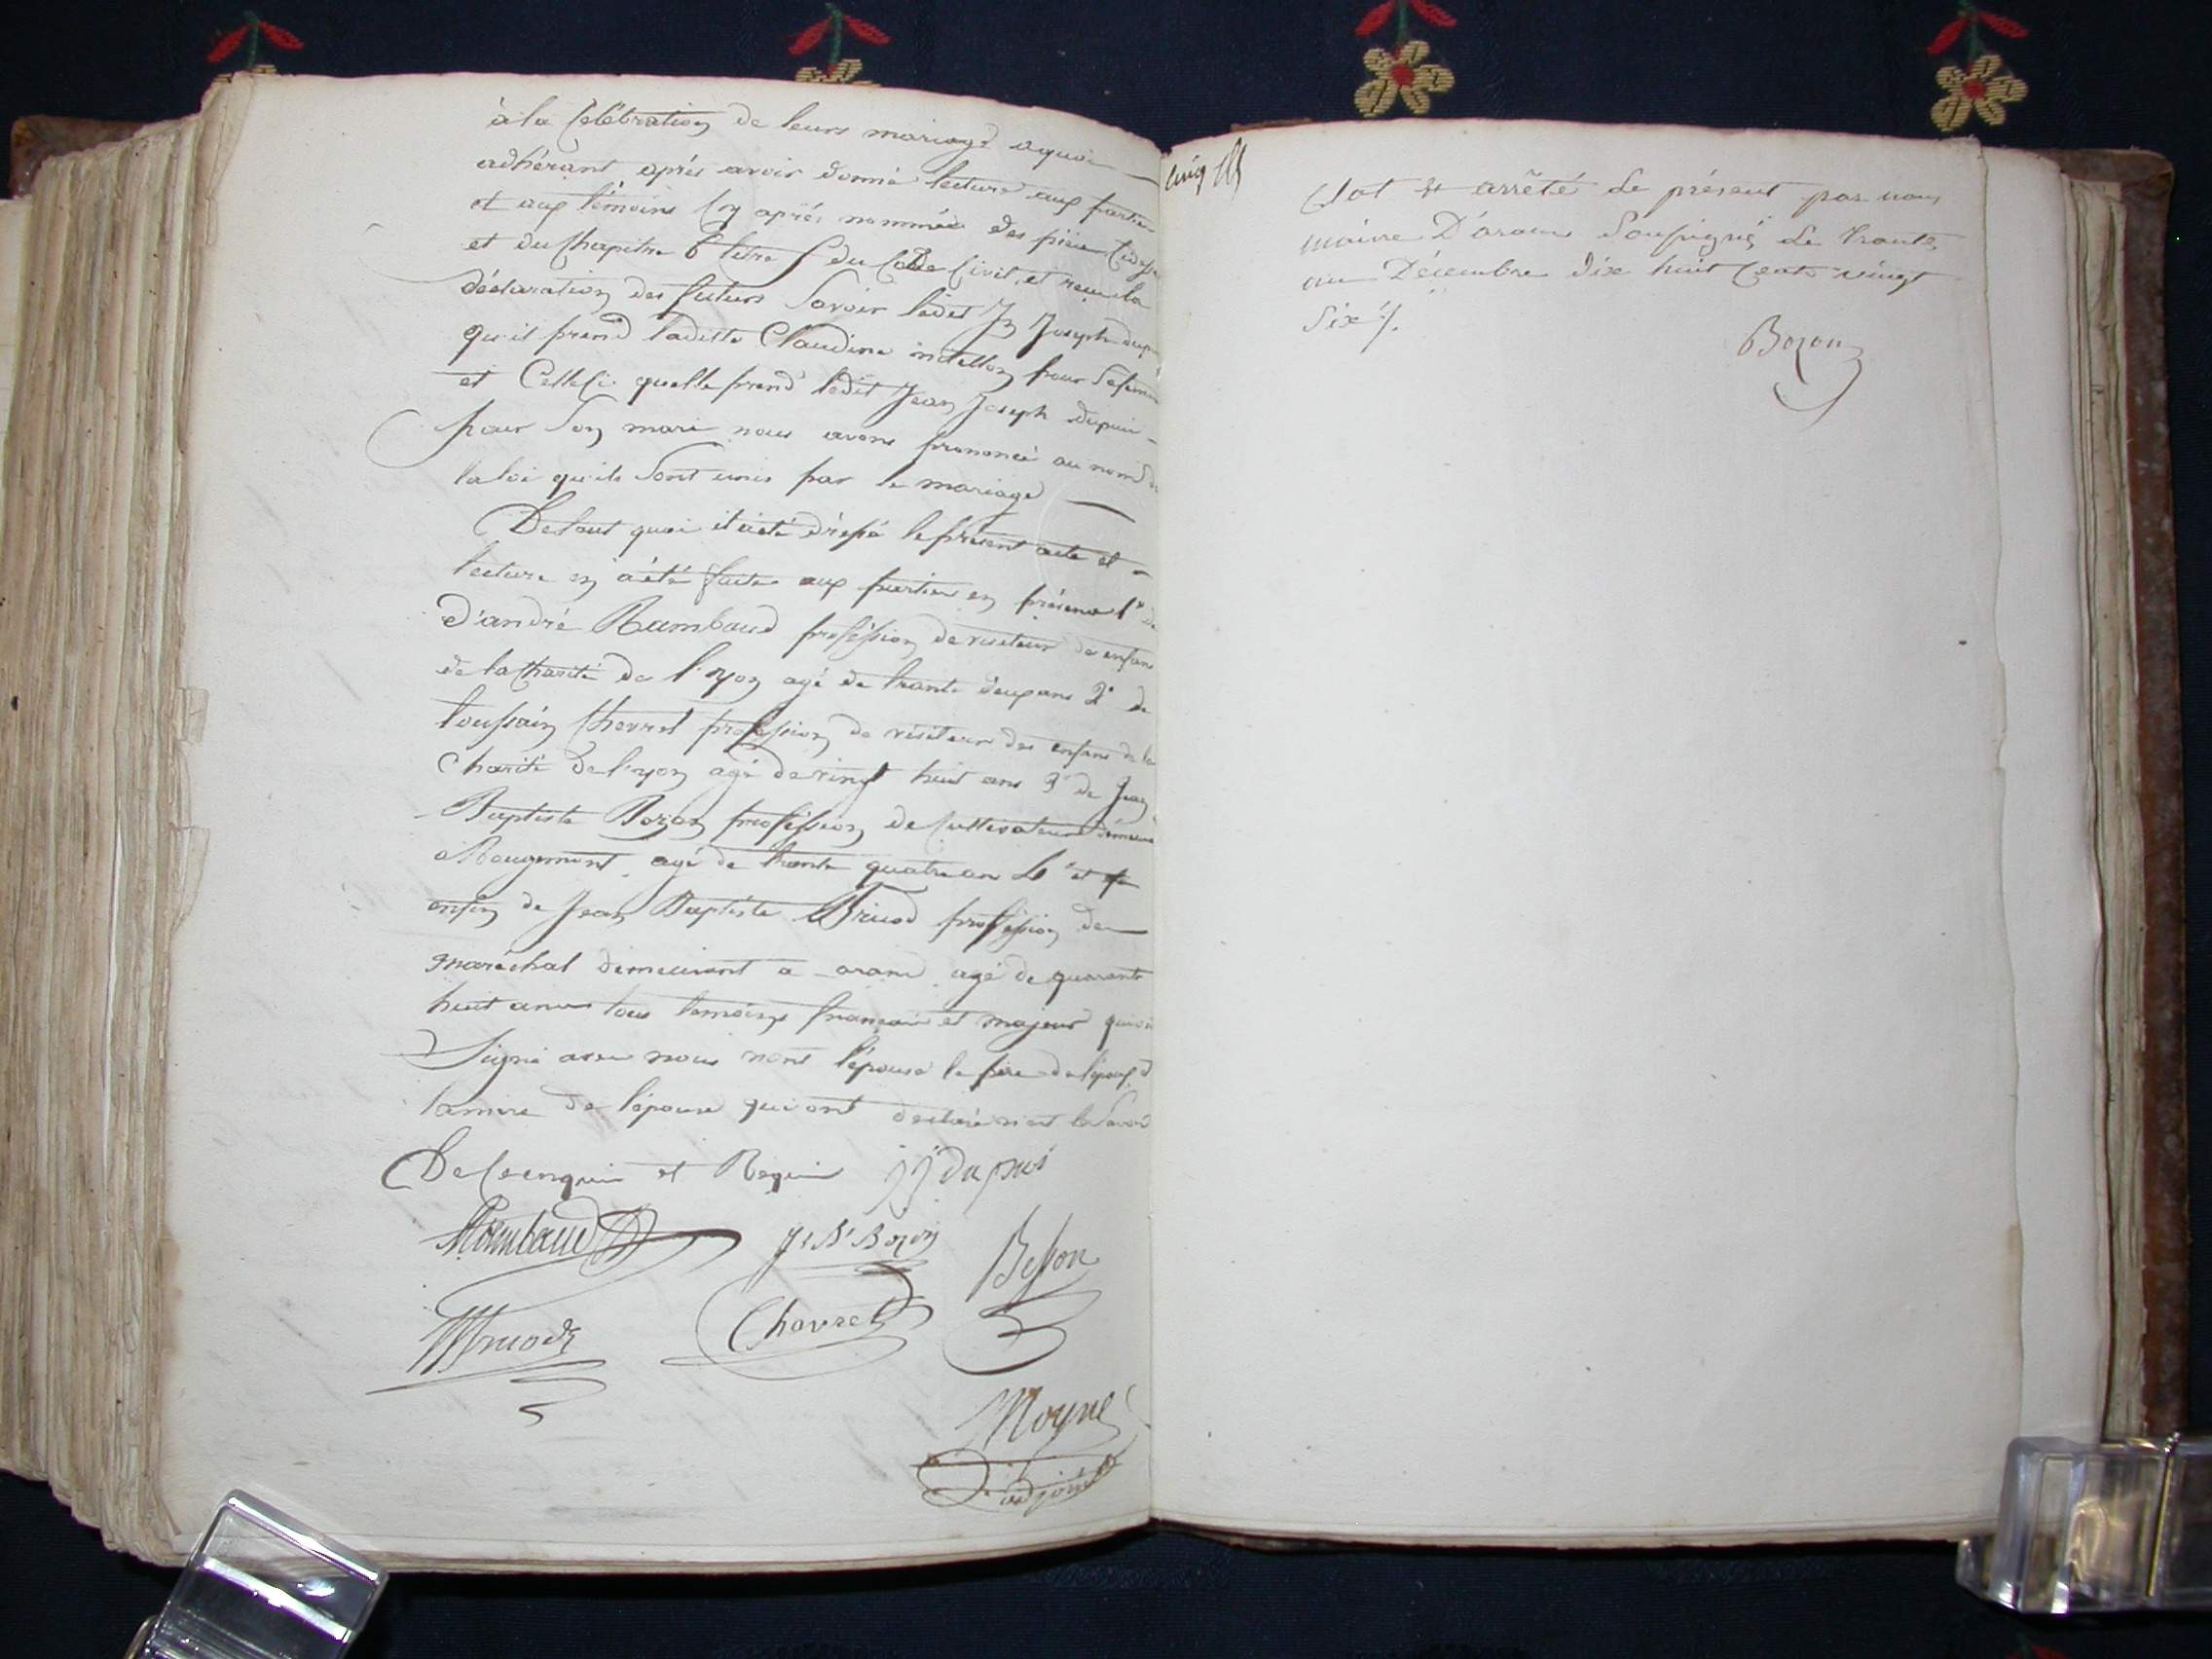 à la Célébration de leurs mariage aquoi
adhérant après avoir donné lecture aux parties
et aux témoins Cy après nommées des pièces Cidessus
et du Chapitre 6 titre 5 du Code Civil, et reçu la
déclaration des futurs Savoir ledit Jn Joseph dupui
qu'il prend laditte Claudine pour Sa femme
et Celle Ci quelle prend ledit Jean Joseph dupui
pour Son mari nous avons prononcé au nom de
la loi qu'ils Sont unis par le mariage
De tout quoi il a été dressé le présent acte et
lecture en a été faite aux parties en présence 1° de
D'andré Rambaud profession de visiteur de enfans
de la Charité de l'yon agé de trante deux ans 2° de
toussain Chevret profession de visiteur des enfans de la
Charité de l'yon agé de vingt huit ans 3° de Jean
Baptiste Bozon profession de Cultivateur demeurant
a Rougemont agé de trante quatre ans 4° et
enfin de Jean Baptiste Bruod profession de
maréchal demeurant a aranc agé de quarante
huit ans tous témoins français et majeur qui ont
Signé avec nous nont l'épouse le père de l'époux et
la mère de l'épouse qui ont declaré ne le Savoir
De Ce enquis et Requis jj dupui
ARambaud Jn Bte Bozon Besson
Bruod Chevret
Moyne
adjoint
Clot et arrêté Le présent par nous
maire D'aranc Soussigné Le trante
un Décembre dix huit Cents vingt
Six ./.
Bozon